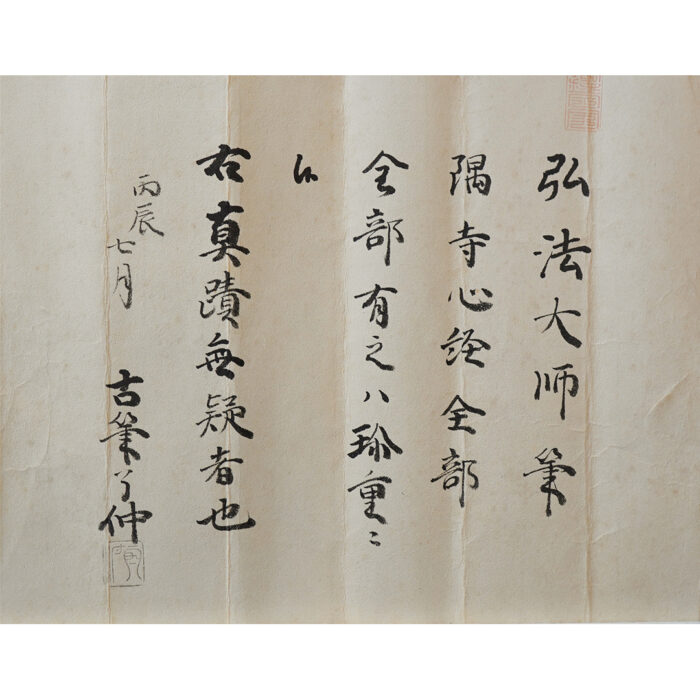 弘法大師筆
隅寺心経全部
全部有之ハ珍重ニ
候
右真蹟無疑者也
丙辰七月
古筆了仲